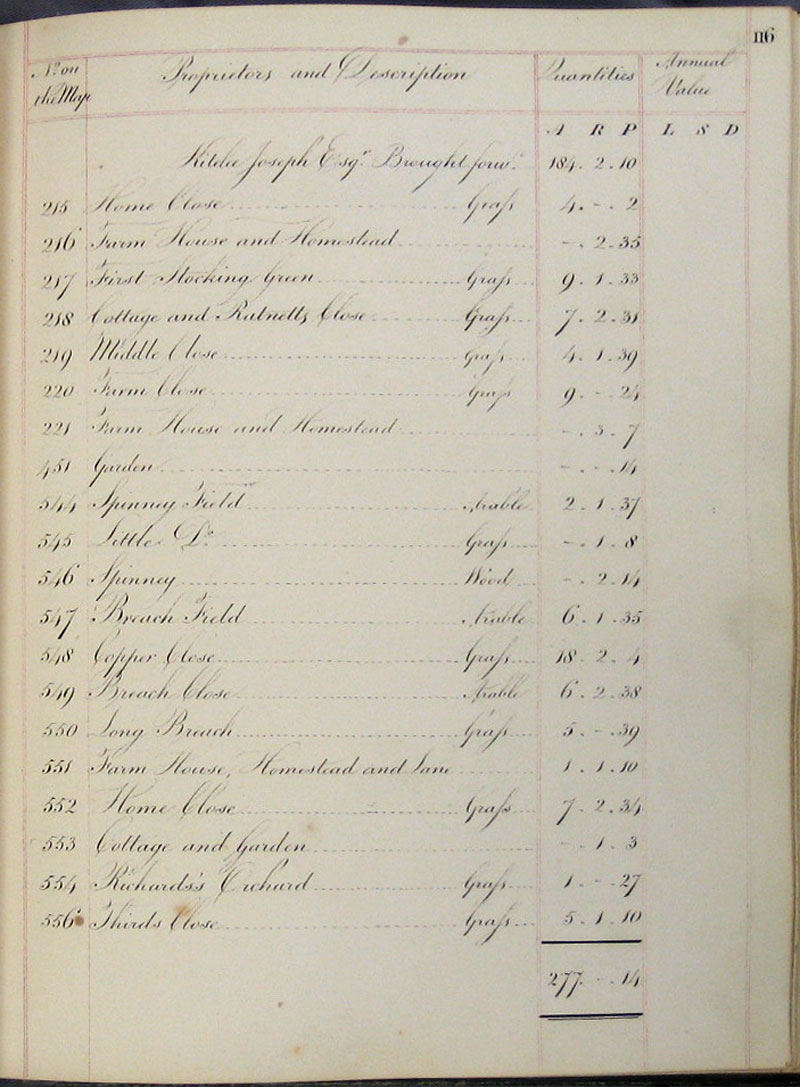 116
No on the Map Proprietors and Description Quantities Annual Value
A R P L S D
Kitelee Joseph Esqr. Brought forwd. 184. 2. 10
215 Home Close Graſs 4. - . 2
216 Farm House and Homestead - . 2. 35
217 First Stocking Green Graſs 9. 1. 33
218 Cottage and Ratnetts Close Graſs 7. 2. 31
219 Middle Close Graſs 4. 1. 39
220 Farm Close Graſs 9. - . 24
221 Farm House and Homestead - . 3. 7
451 Garden - . - . 14
544 Spinney Field Arable 2. 1. 37
545 Little Do. Graſs - . 1. 8
546 Spinney Wood - . 2. 14
547 Breach Field Arable 6. 1. 35
548 Copper Close Graſs 18. 2. 4
549 Breach Close Arable 6. 2. 38
550 Long Breach Graſs 5. - . 39
551 Farm House, Homestead and Lane 1. 1. 10
552 Home Close Graſs 7. 2. 34
553 Cottage and Garden - . 1. 3
554 Richards's Orchard Graſs 1. - . 27
556 Thirds Close Graſs 5. 1. 10
277. - . 14